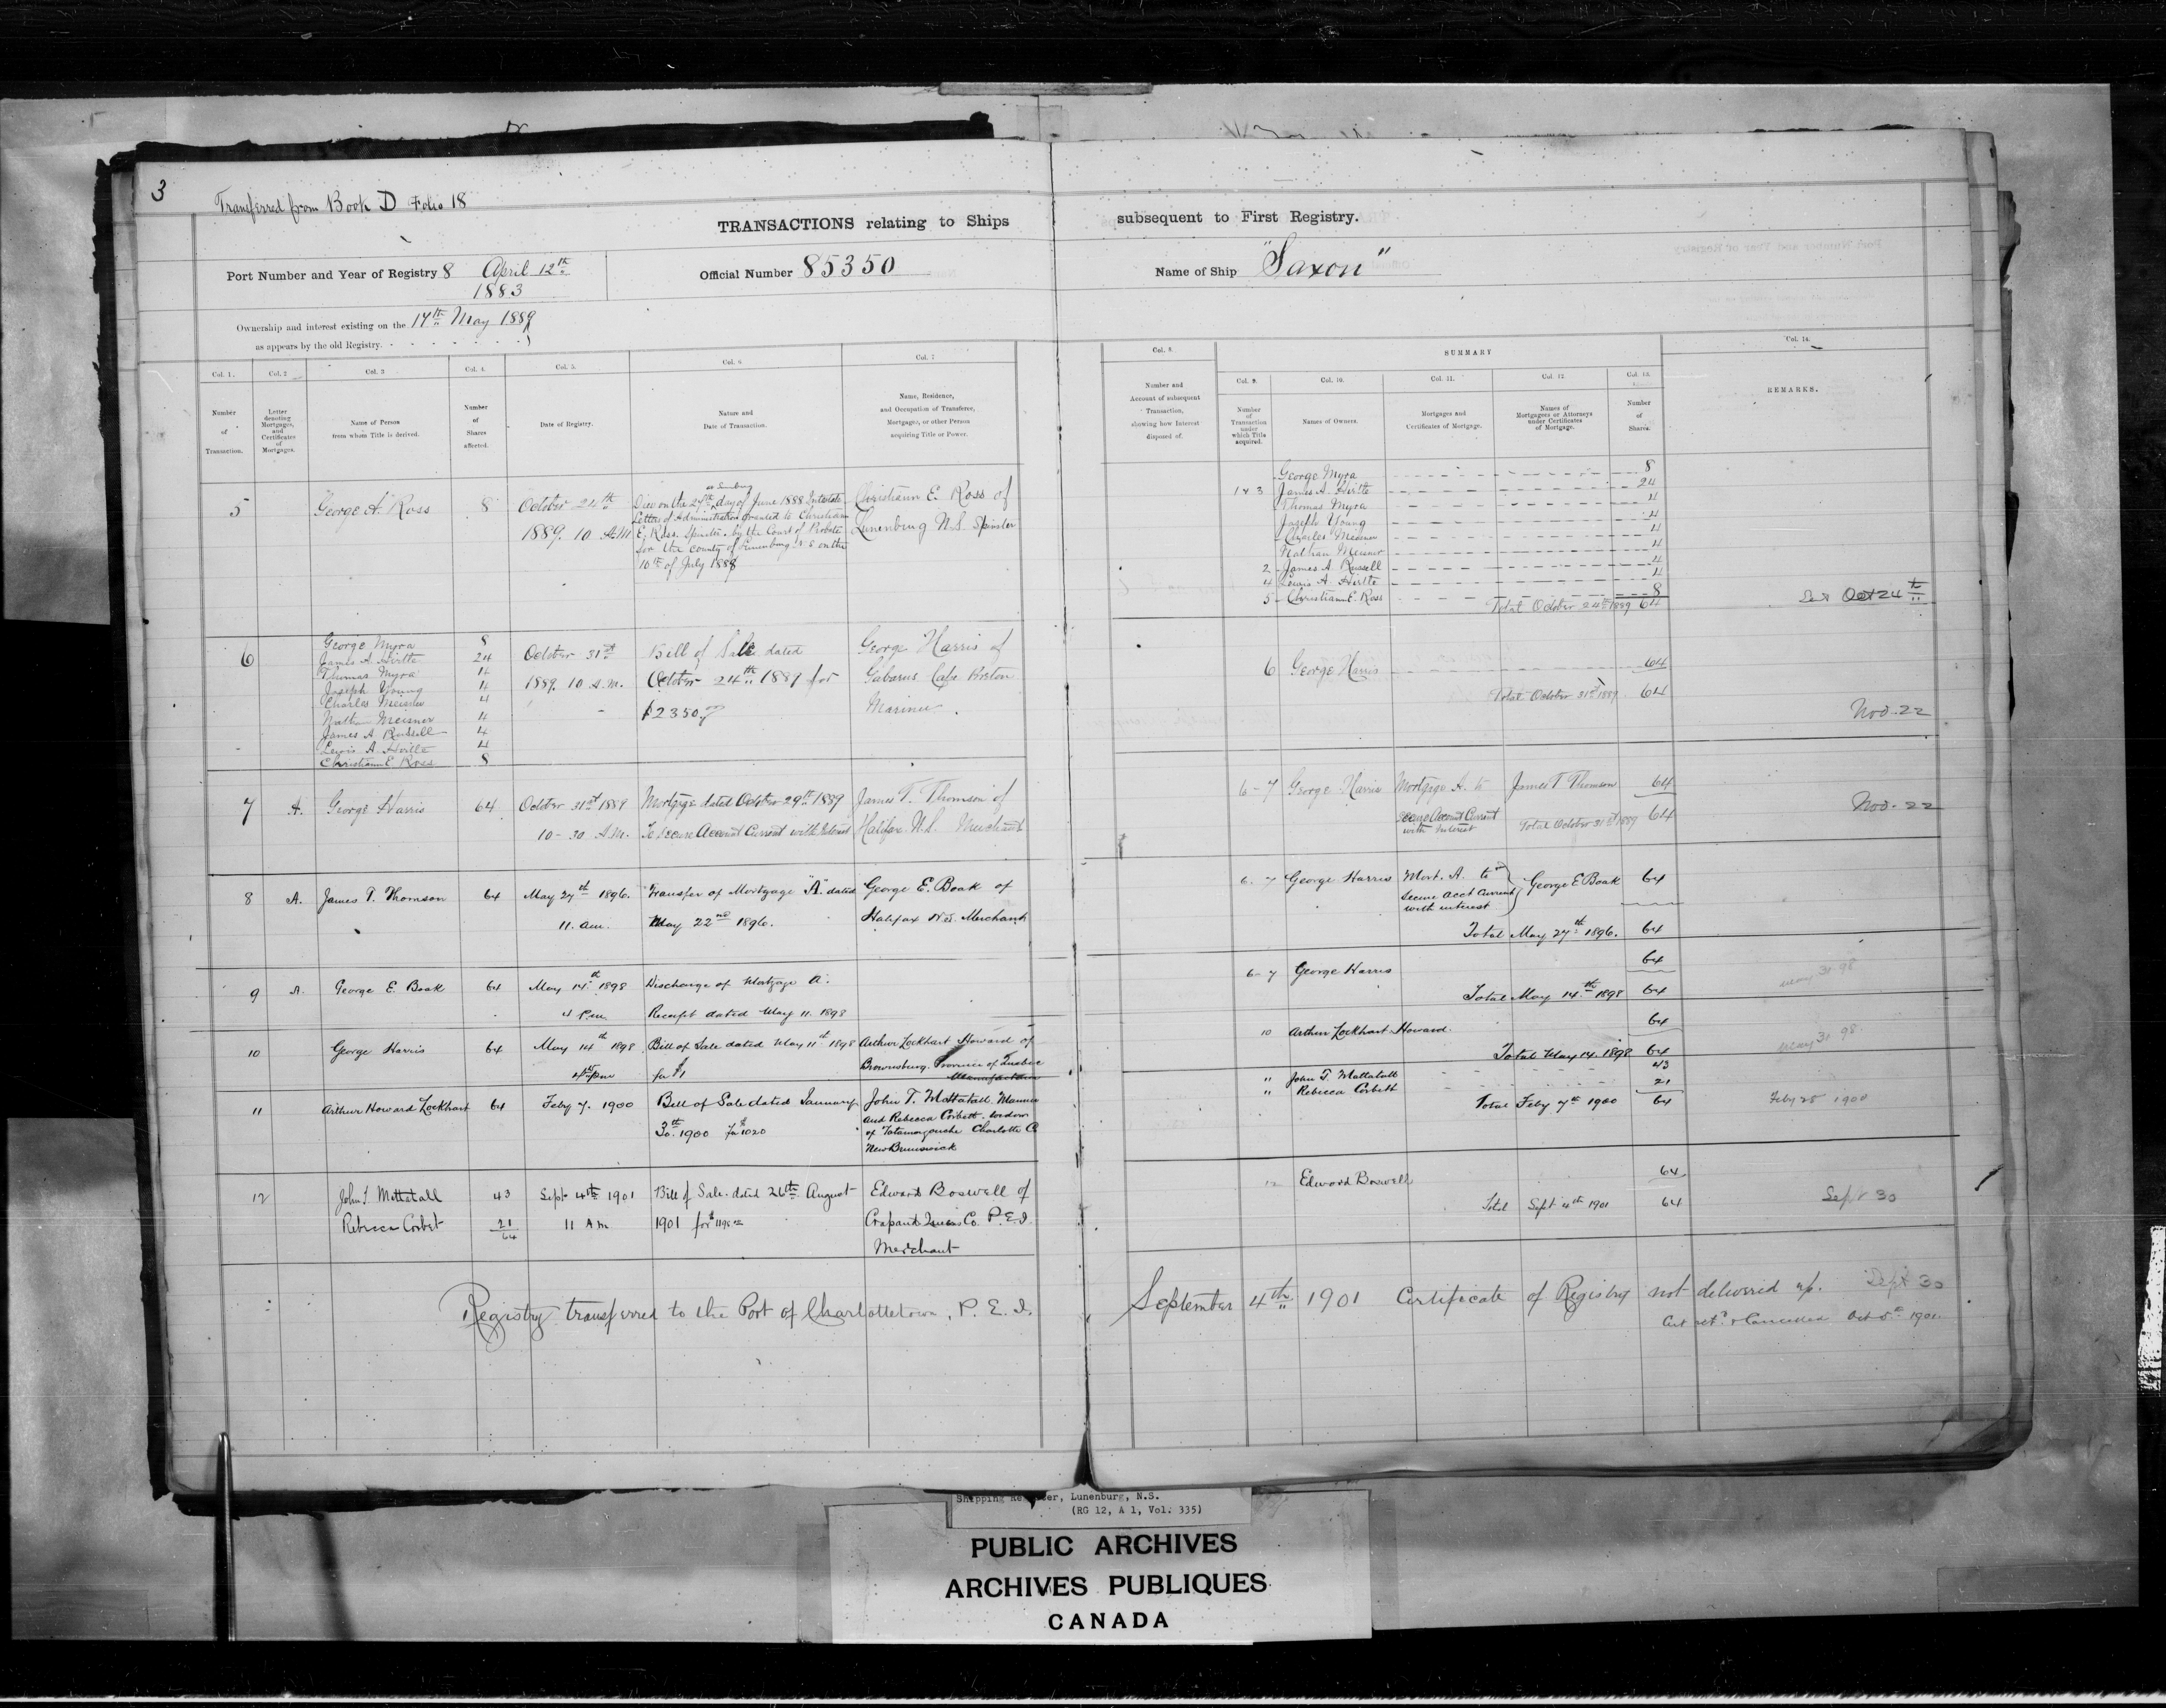 3
Transferred from Book D Folio 18
TRANSACTIONS relating to Ships subsequent to First Registry.
Port Number and Year of Registry 8 April 12th 1883
Official Number 85350
Name of Ship "Saxon"
Ownership and interest existing on the 14th May 1889
as appears by the old Registry.
Col. 1. Number of Transaction.
Col. 2 Letter denoting Mortgages, and Certificates of Mortgages.
Col. 3 Name of Person from whom Title is derived.
Col. 4. Number of Shares affected.
Col. 5. Date of Registry.
Col. 6 Nature and Date of Transaction.
Col. 7 Name, Residence, and Occupation of Transferee, Mortgagee, or other Person acquiring Title or Power.
Col. 8. Number and Account of subsequent Transaction, showing how Interest disposed of.
SUMMARY
Col. 9. Number of Transaction under which Title acquired.
Col. 10. Names of Owners.
Col. 11. Mortgages and Certificates of Mortgage.
Col. 12. Names of Mortgagees or Attorneys under Certificates of Mortgage.
Col. 13. Number of Shares.
Col. 14. REMARKS.
5 George A. Ross 8 October 24th 1889. 10 A.M.
Died on the 27th day of June 1888 Intestate
Letters of Administration granted to Christiann
E. Ross. Spinster. by the Court of Probate
for the County of Lunenburg N.S on the
10th of July 1888
Christiann E. Ross of
Lunenburg N.S. Spinster
George Myra 8
1 & 3 James A. Hirtle 24
Thomas Myra 4
Joseph Young 4
Charles Meisner 4
Nathan Meisner 4
2 James A. Russell 4
4 Lewis A. Hirtle 4
5 Christiann E. Ross 8
Total October 24th 1889 64
Oct 24th
6 George Myra 8
James A. Hirtle 24
Thomas Myra 4
Joseph Young 4
Charles Meisner 4
Nathan Meisner 4
James A Russell 4
Lewis A. Hirtle 4
Christiann E. Ross 8
October 31st 1889. 10 A.M.
Bill of Sale dated
October 24th 1889 for
$2350
George Harris of
Gabarus Cape Breton
Mariner.
6 George Harris 64
Total October 31st 1889. 64
Nov. 22
7 A. George Harris 64 October 31st 1889 10-30 A.M.
Mortgage dated October 29th 1889
To Secure Account Current with Interest
James T. Thomson of
Halifax N.S. Merchant
6-7 George Harris Mortgage A. to James T Thomson 64
secure Account Current
with Interest Total October 31st 1889 64
Nov. 22
8 A. James T. Thomson 64 May 27th 1896. 11. am.
Transfer of Mortgage "A" dated
May 22nd 1896.
George E. Boak of
Halifax N.S. Merchant
6-7 George Harris Mort. A. to George E Boak 64
Secure acct Current
with interest
Total May 27th 1896. 64
9 A. George E. Boak 64 May 14th 1898 4 P.m.
Discharge of Mortgage A.
Receipt dated May 11. 1898
6-7 George Harris 64
Total May 14th 1898 64
May 31 98
10 George Harris 64 May 14th 1898 4 pm
Bill of Sale dated May 11th 1898
for $1
Arthur Lockhart Howard of
Brownsburg. Province of Quebec
Manufacturer
10 Arthur Lockhart Howard. 64
Total May 14. 1898 64
May 31 98
11 Arthur Howard Lockhart 64 Feby 7. 1900
Bill of Sale dated January
30th 1900 for $1020
John T. Mattatall. Mariner
and Rebecca Corbett. widow
of Tatamagouche Charlotte Co
New Brunswick
" John T. Mattatall 43
" Rebecca Corbett 21
Total Feby 7th 1900 64
Feby 28 1900
12 John T. Mattatall 43
Rebecca Corbet 21
64
Sept 4th 1901 11 A.m.
Bill of Sale dated 26th August
1901 for
Edward Boswell of
Crapaud Queens Co. P.E.I.
Merchant
12 Edward Boswell 64
Total Sept 4th 1901 64
Sept 30
Registry transferred to the Port of Charlottetown, P. E. I.
September 4th 1901 Certificate of Registry not delivered up. Sept 30
Cert retd & Cancelled Oct 5 1901.
Shipping Register, Lunenburg, N.S.
(RG 12, A 1, Vol. 335)
PUBLIC ARCHIVES
ARCHIVES PUBLIQUES
CANADA